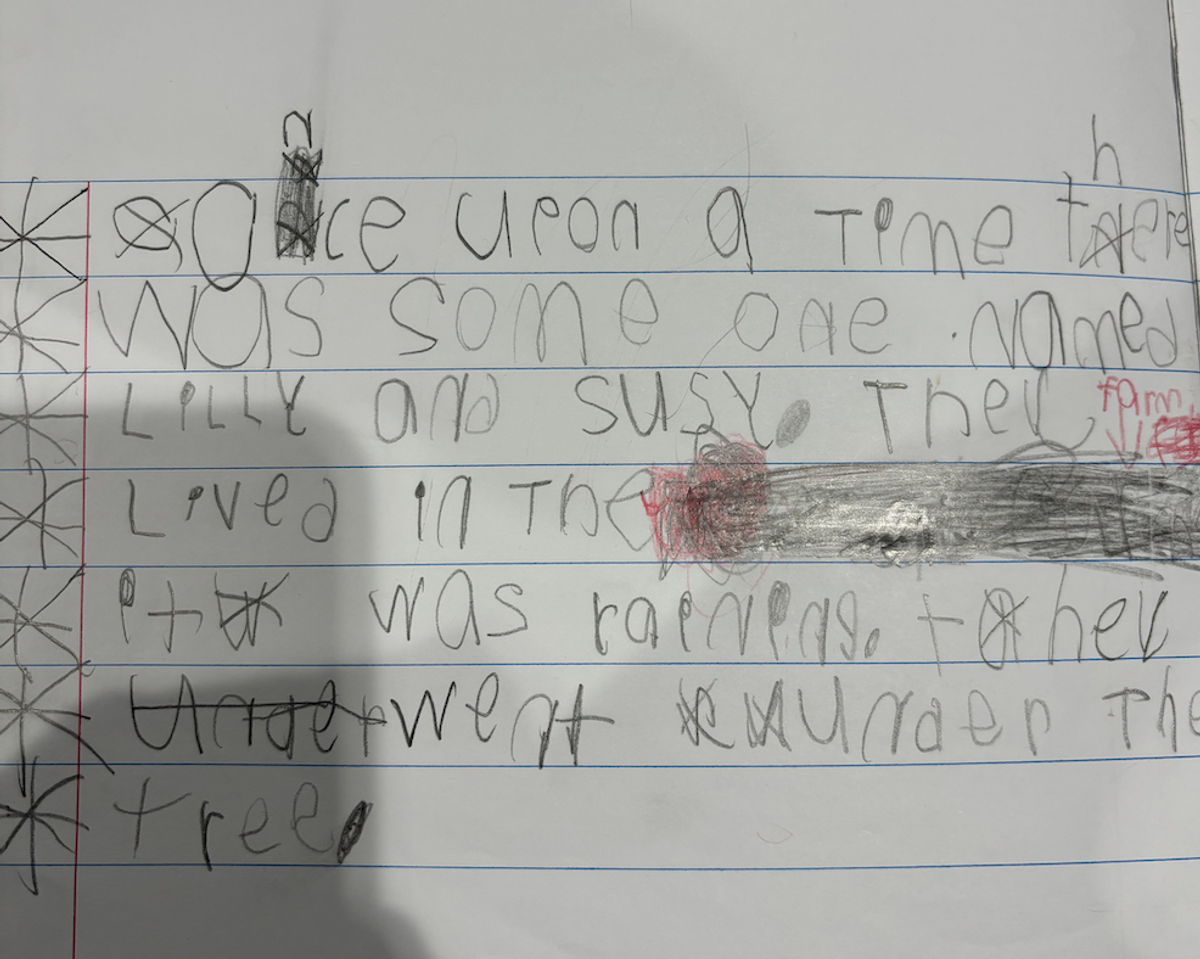 Once upon a Time there
was some one named
Lilly and susy. They farm
Lived in The
it was raining. they
went under The
tree.